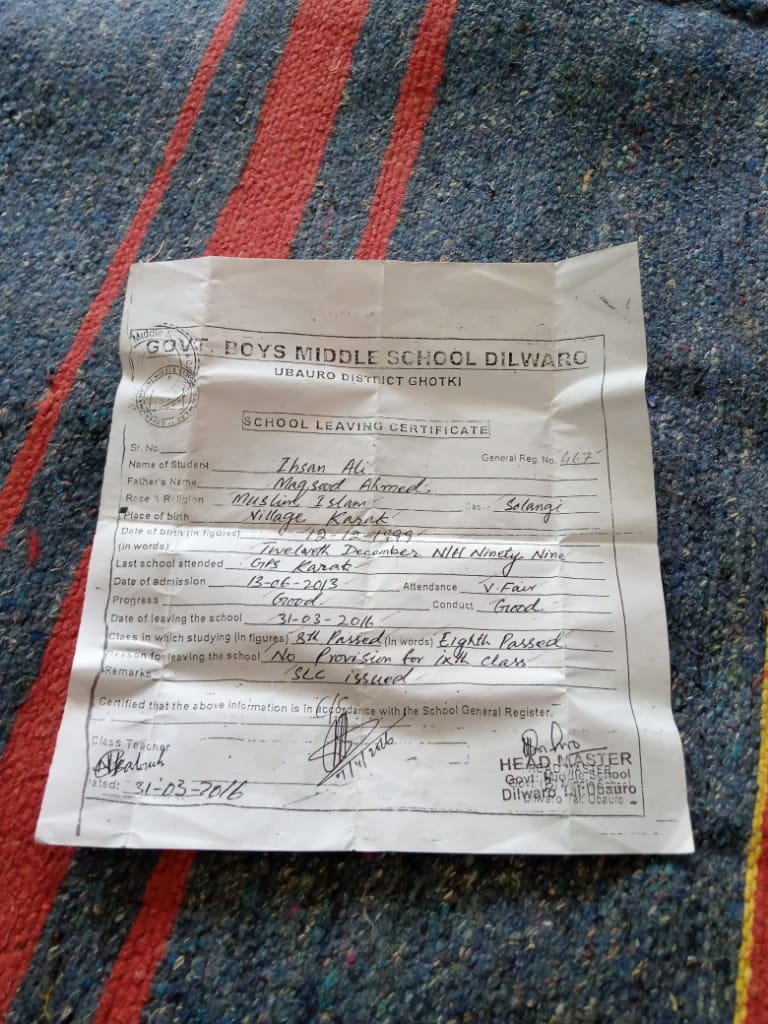 GOVT. BOYS MIDDLE SCHOOL DILWARO
UBAURO DISTRICT GHOTKI
SCHOOL LEAVING CERTIFICATE
Sr. No.
General Reg. No. 467
Name of Student Ihsan Ali
Father's Name Maqsood Ahmed.
Race & Religion Muslim Islam Caste Solangi
Place of birth Village Karak
Date of birth (in figures) 12-12-1999
(in words) Twelveth December N/H Ninety Nine
Last school attended GPS Karak
Date of admission 13-06-2013 Attendance V. Fair
Progress Good Conduct Good
Date of leaving the school 31-03-2016
Class in which studying (in figures) 8th Passed (in words) Eighth Passed
Reason for leaving the school No Provision for ixth class
Remarks SLC issued
Certified that the above information is in accordance with the School General Register.
Class Teacher
HEAD MASTER
Govt. Middle School
Dilwaro Tal: Ubauro
Dated: 31-03-2016